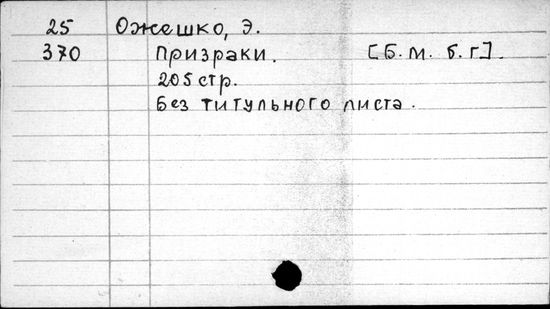 25 Ожешко, Э.
370 Призраки. [Б. м. б. г].
205 стр.
Без титульного листа.